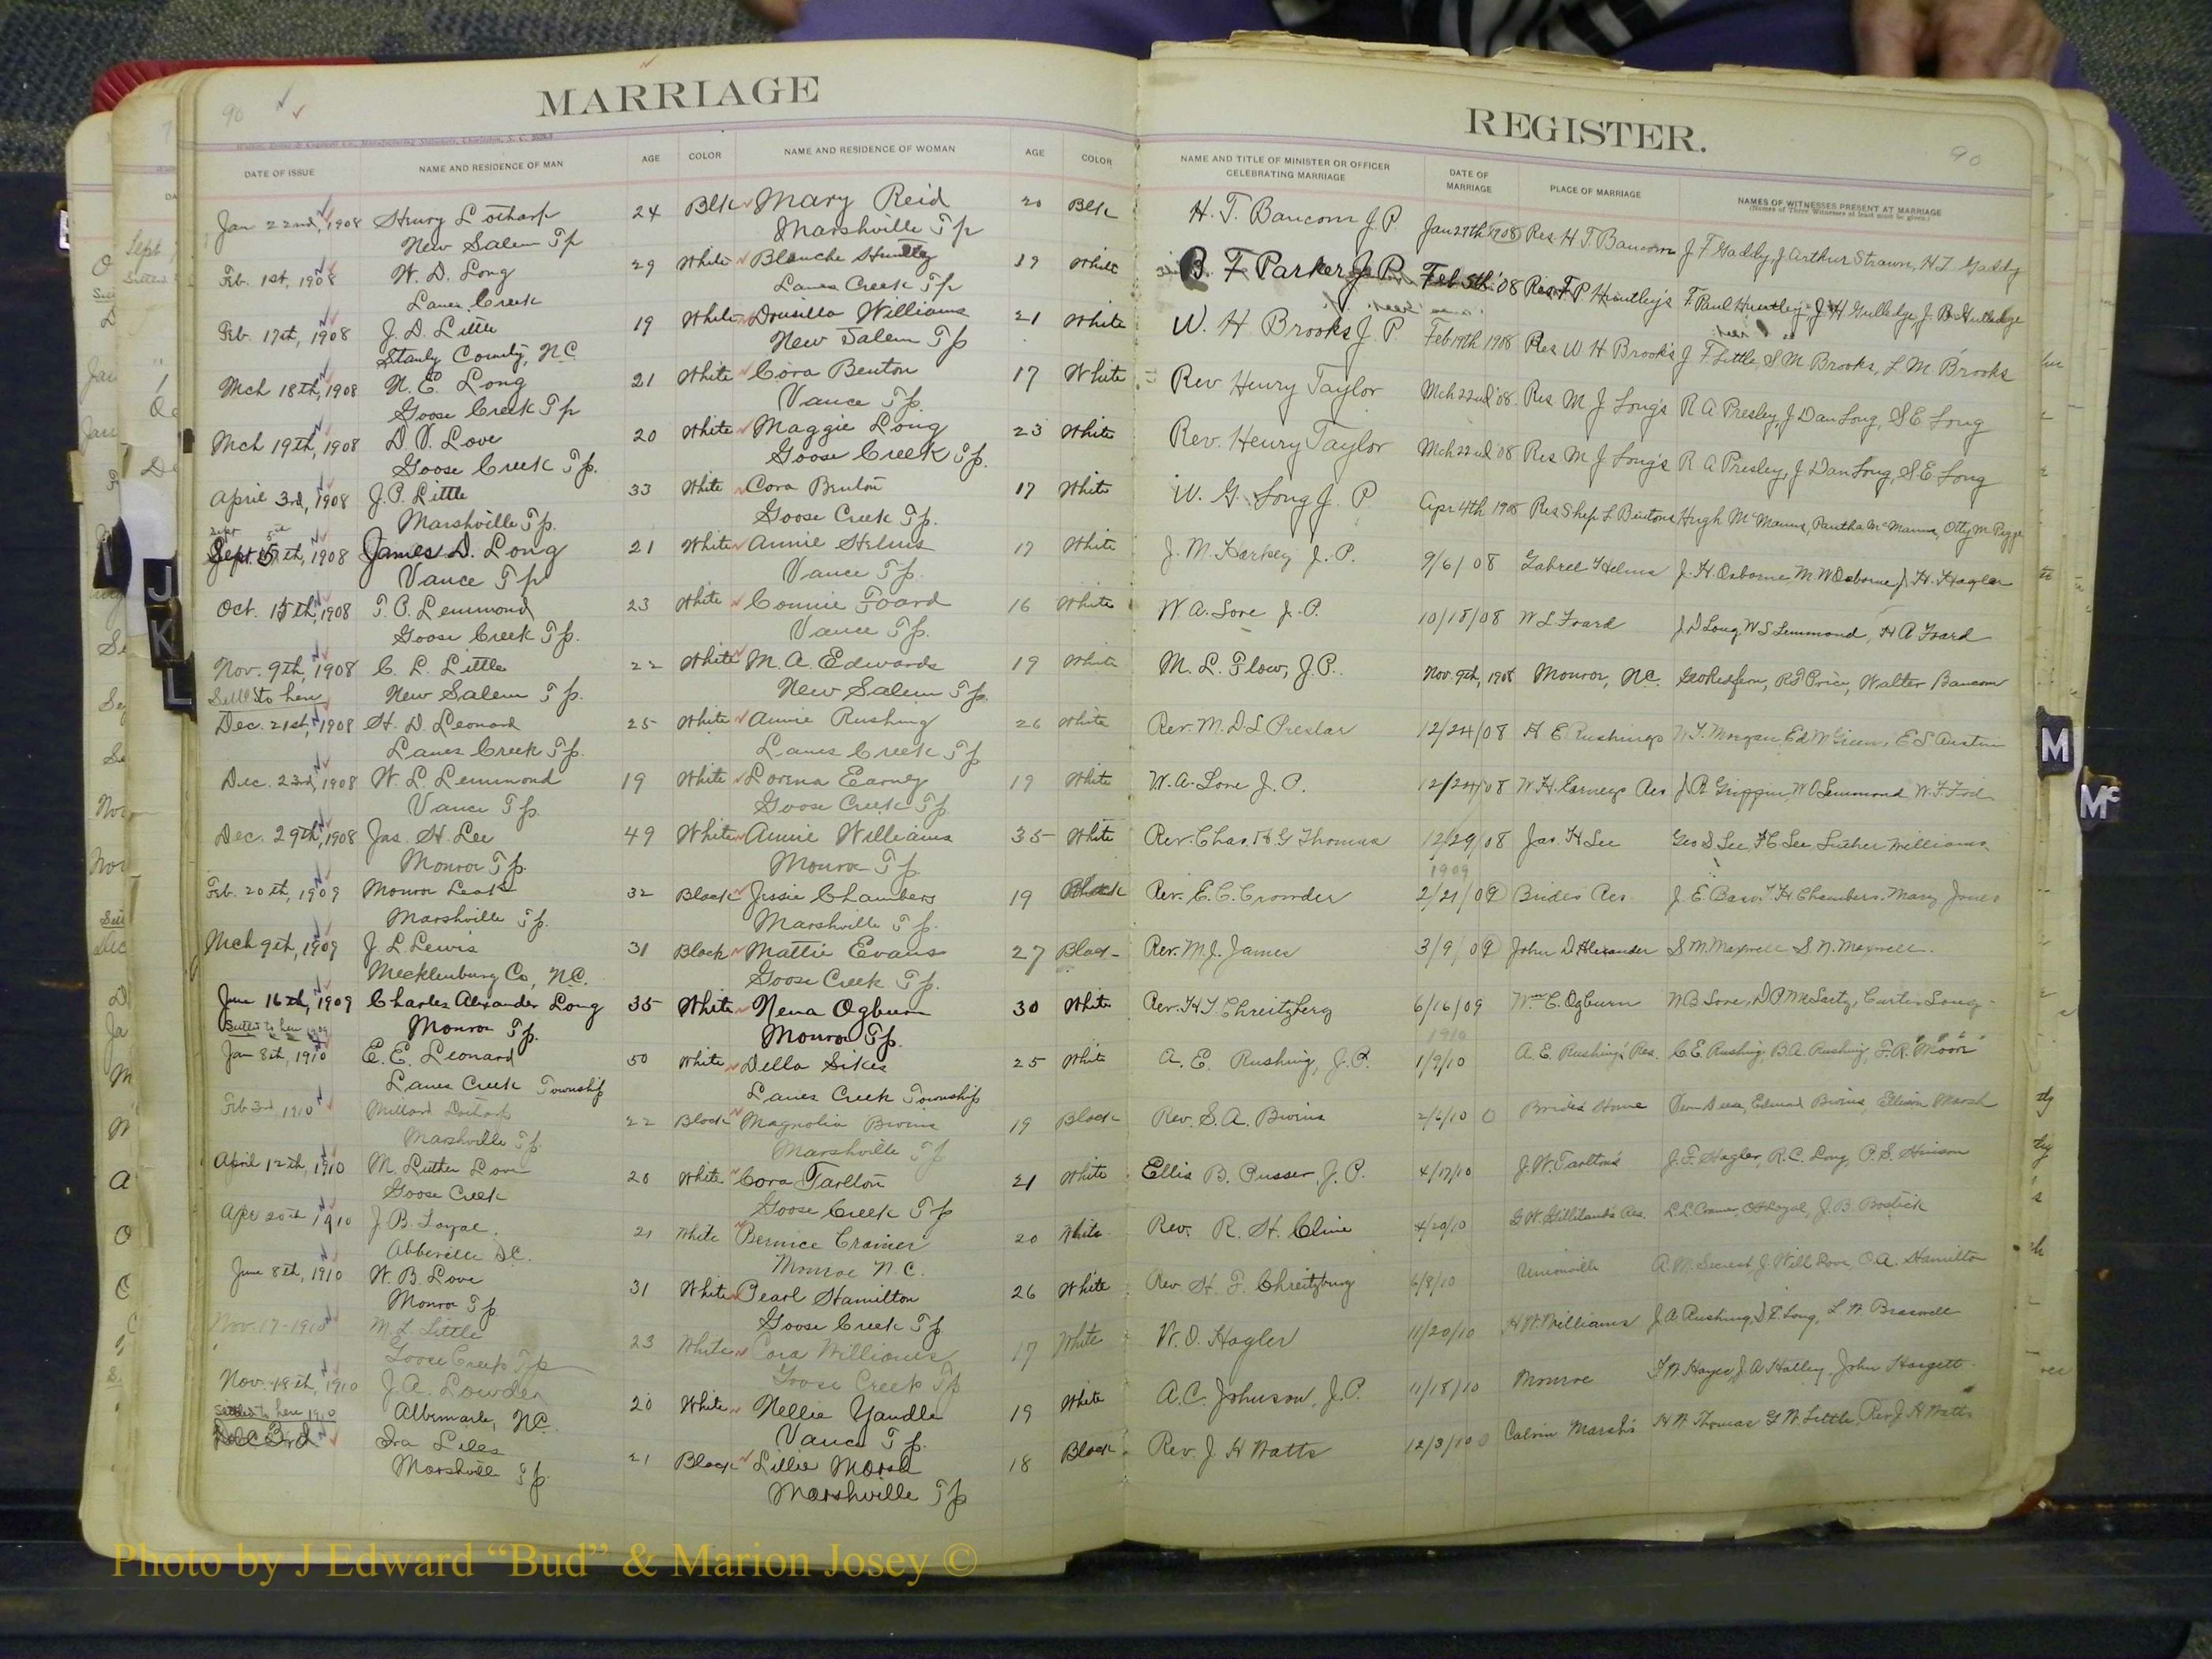 MARRIAGE
REGISTER.
90
90
DATE OF ISSUE NAME AND RESIDENCE OF MAN AGE COLOR NAME AND RESIDENCE OF WOMAN AGE COLOR NAME AND TITLE OF MINISTER OR OFFICER CELEBRATING MARRIAGE DATE OF MARRIAGE PLACE OF MARRIAGE NAMES OF WITNESSES PRESENT AT MARRIAGE
(Names of Three Witnesses at least must be given.)
Jan 22nd, 1908 Henry Lotharp 24 Blk Mary Reid 20 Blk H. T. Baucom J P. Jan 27th 1908 Res. H T. Baucom J F Gaddy, J Arthur Strawn, H L Gaddy
New Salem Tp Marshville Tp
Feb. 1st, 1908 W. D. Long 29 White Blanche Huntley 19 White B F Parker J P Feb 5th '08 Res F P Huntley's F. Paul Huntley J H Gulledge, J. B. Gulledge
Lanes Creek Lanes Creek Tp
Feb. 17th, 1908 J. D. Little 19 White Drusilla Williams 21 White W. H Brooks J. P Feb 19th 1908 Res W H Brook's J F Little, S M Brooks, L M. Brooks
Stanly County, N.C. New Salem Tp
Mch 18th, 1908 N. E. Long 21 White Cora Benton 17 White Rev Henry Taylor Mch 22nd '08. Res M J Long's R A Presley, J Dan Long, S E Long
Goose Creek Tp Vance Tp.
Mch 19th, 1908 D. V. Love 20 White Maggie Long 23 White Rev. Henry Taylor Mch 22nd '08 Res M J Long's R A Presley, J Dan Long, S E Long
Goose Creek Tp. Goose Creek Tp.
April 3rd, 1908 J. P. Little 33 White Cora Benton 17 White W. G. Long J. P Apr 4th 1908 Res Shep L Bentons Hugh McManus, Pautha McManus, Otty M
Marshville Tp. Goose Creek Tp.
Sept 5th, 1908 James D. Long 21 White Annie Helms 17 White J. M. Harkey J. P. 9/6/08 Gabrel Helms J. H. Osborne M. W Osborne J. H. Hagler
Vance Tp Vance Tp.
Oct. 15th, 1908 T. P. Lemmond 23 White Connie Foard 16 White W. A. Love J. P. 10/18/08 W L Foard J D Long W S Lemmond, H A Foard
Goose Creek Tp. Vance Tp.
Nov. 9th, 1908 C. L. Little 22 White M. A. Edwards 19 White M. L. Flow, J. P. Nov. 9th, 1908 Monroe, N.C. Geo Redfern, R F Price, Walter Baucom
New Salem Tp. New Salem Tp.
Settled to here
Dec. 21st, 1908 H. D. Leonard 25 White Annie Rushing 26 White Rev. M. D L Preslar 12/24/08 H. E. Rushings Morgan Ed W Green, E S Austin
Lanes Creek Tp. Lanes Creek Tp
Dec. 23rd, 1908 W. L. Lemmond 19 White Lorena Earney 19 White W. A. Love J. P. 12/24/08 W. H. Earneys Res J. R. Griffin, W O Lemmond W. F.
Vance Tp. Goose Creek Tp.
Dec. 29th, 1908 Jas. H. Lee 49 White Annie Williams 35 White Rev. Chas. H. G Thomas 12/29/08 Jas H Lee Geo S Lee, H C Lee, Luther Williams
Monroe Tp. Monroe Tp.
1909
Feb. 20th, 1909 Monroe Leak 32 Black Jessie Chambers 19 Black Rev. E. C. Crowder 2/21/09 Brides Res. J. E. H Chambers, Mary Jones
Marshville Tp. Marshville Tp.
Mch 9th, 1909 J. L Lewis 31 Black Mattie Evans 27 Black Rev. M. J. James 3/9/09 John D Alexander S M. Maxwell S. N. Maxwell.
Mecklenburg Co, N.C. Goose Creek Tp.
June 16th, 1909 Charles Alexander Long 35 White Nena Ogburn 30 White Rev. H. F. Chreitzberg 6/16/09 Wm C. Ogburn W B Love, Carter Long
Monroe Tp. Monroe Tp.
Settled to here 1909
1910
Jan 8th, 1910 E. E. Leonard 50 White Della Sikes 25 White A. E. Rushing, J. P. 1/9/10 A. E. Rushing's Res. C. E. Rushing, B. A. Rushing, F. R. Moore
Lanes Creek Township Lanes Creek Township
Feb 3rd 1910 Millard Lotharp 22 Black Magnolia Bivins 19 Black Rev. S. A. Bivins 2/6/10 Brides Home Edmund Bivins, Ellison Marsh
Marshville Tp. Marshville Tp
April 12th, 1910 M. Luther Love 20 White Cora Tarlton 21 White Ellis B. Pusser, J. P. 4/17/10 J. W. Tarlton's J. F. Hagler, R. C. Long, P. S. Hinson
Goose Creek Goose Creek Tp
Apr 20th 1910 J. B. Loyal. 21 White Bernice Cramer 20 White Rev. R. H. Cline 4/20/10 G. W. Gilliland's Res. L. L. Cramer, O H Loyal, J. B. Bostick
Abbeville S.C. Monroe N.C.
June 8th, 1910 W. B. Love 31 White Pearl Hamilton 26 White Rev H. F. Chreitzburg 6/8/10 Unionville A. M. Secrest J. Will Love, O. A. Hamilton
Monroe Tp Goose Creek Tp
Nov. 17-1910 M. L. Little 23 White Cora Williams 17 White W. O. Hagler 11/20/10 H. W. Williams J. A. Rushing, D. E. Long, L. N Braswell
Goose Creek Tp Goose Creek Tp
Nov. 18th, 1910 J. A. Lowder 20 White Nellie Yandle 19 White A. C. Johnson, J. P. 11/18/10 Monroe J. A Holley, John Hargett
Albemarle, N.C. Vance Tp.
Settled to here 1910
Dec 3rd Ira Liles 21 Black Lillie Marsh 18 Black Rev. J H Watts 12/3/10 Calvin Marsh's H. W. Thomas G W. Little, Rev J. H Watts
Marshville Tp. Marshville Tp
J
K
L
M
Mc
Photo by J Edward “Bud” & Marion Josey ©